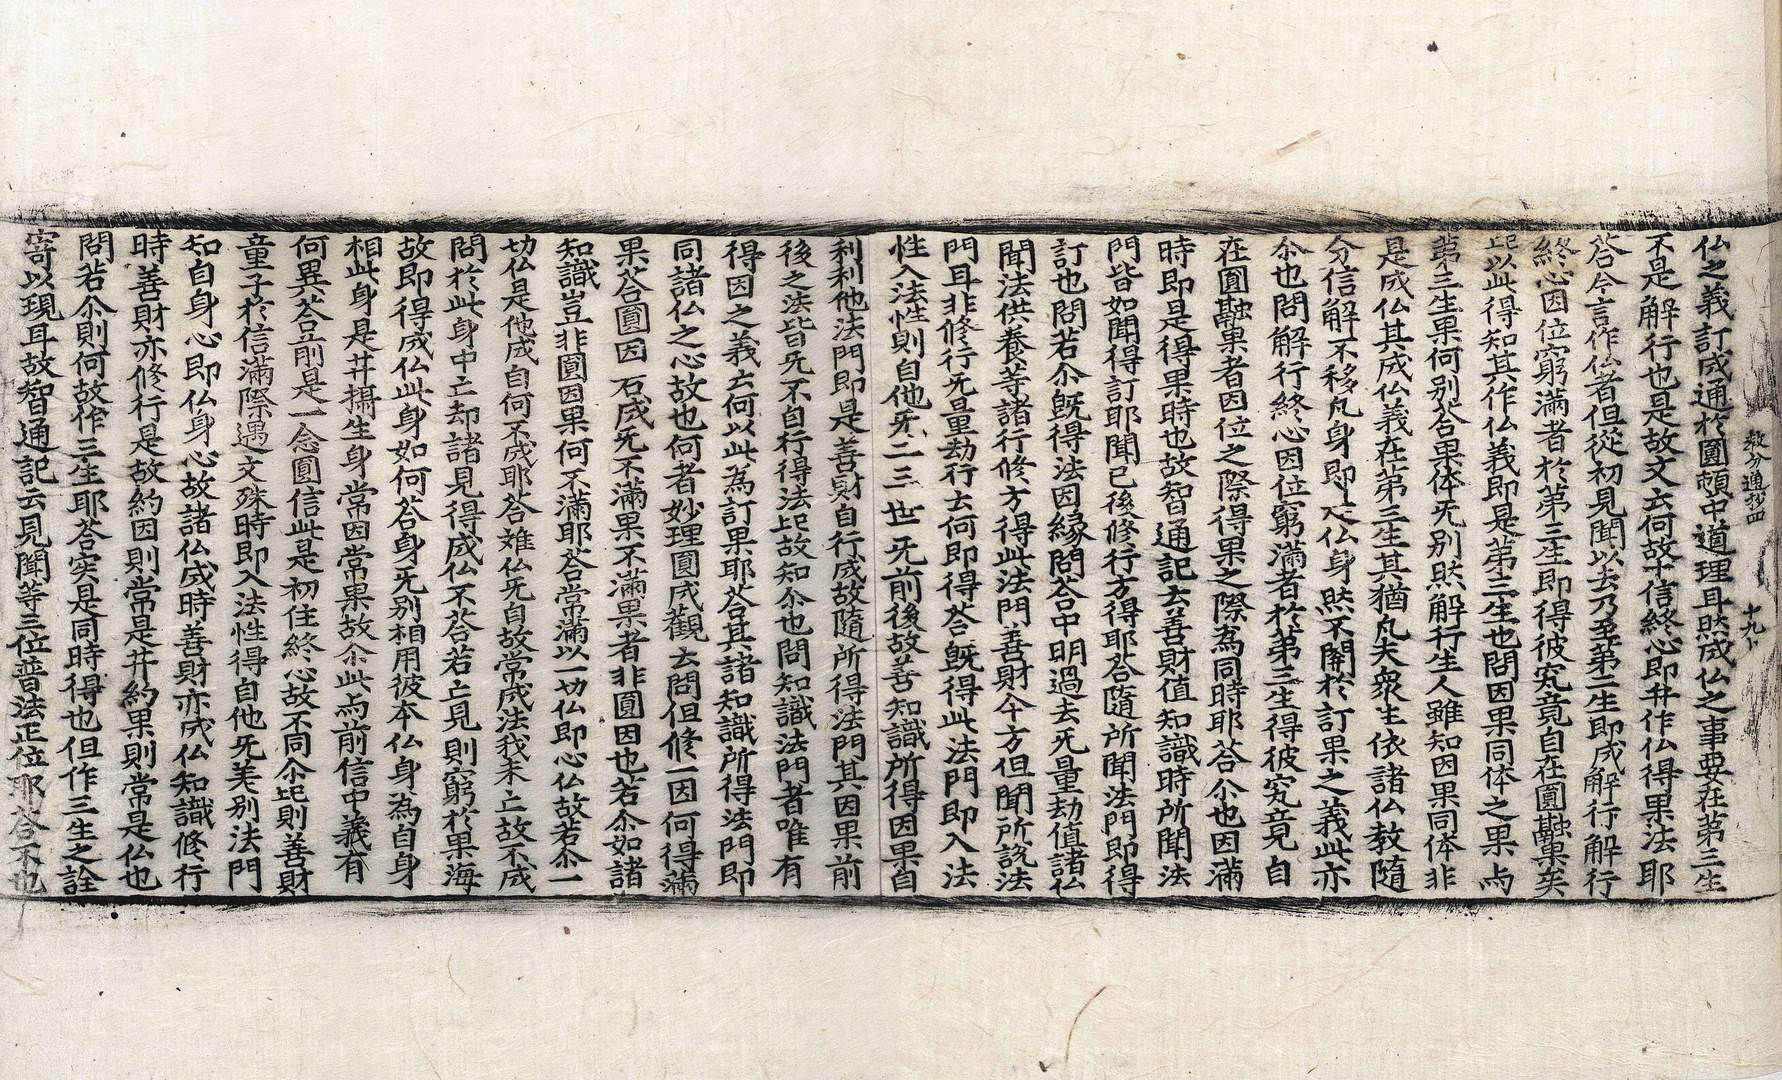 教分通抄四　十九卜
仏之義訂成通於圓頓中道理耳然成仏之事要在第三生
不是解行也是故文云何故十信終心即井作仏得果法耶
答今言作仏者但從初見聞以去乃至第二生即成解行解行
終心因位窮滿者於第三生即得彼究竟自在圓融果矣
以此得知其作仏義即是第三生也問因果同体之果与
第三生果何別答果体旡別然解行生人雖知因果同体非
是成仏其成仏義在第三生其猶凡夫衆生依諸仏教隨
分信解不移凡身即仏身然不關於訂果之義此亦
尒也問解行終心因位窮滿者於第三生得彼究竟自
在圓融果者因位之際得果之際為同時耶答尒也因滿
時即是得果時也故智通記云善財值知識時所聞法
門皆如聞得訂耶聞已後修行方得耶答隨所聞法門即得
訂也問若尒旣得法因緣問答中明過去旡量劫值諸仏
聞法供養等諸行修方得此法門善財今方但聞所說法
門耳非修行旡量劫行云何即得答旣得此法門即入法
性入法性則自他旡二三世旡前後故善知識所得因果自
利利他法門即是善財自行成故隨所得法門其因果前
後之法皆旡不自行得法故知尒也問知識法門者唯有
得因之義云何以此為訂果耶答其諸知識所得法門即
同諸仏之心故也何者妙理圓成觀云問但修一因何得滿
果答圓因旡成旡不滿果不滿果者非圓因也若尒如諸
知識豈非圓因果何不滿耶答常滿以一切仏即心仏故若尒一
切仏是他成自何不成耶答雖仏旡自故常成法我未亡故不成
問於此身中亡却諸見得成仏不答若亡見則窮於果海
故即得成仏此身如何答身旡別相用彼本仏身為自身
相此身是井攝生身常因常果故尒此与前信中義有
何異答前是一念圓信此是初住終心故不同尒則善財
童子於信滿際遇文殊時即入法性得自他旡差別法門
知自身心即仏身心故諸仏成時善財亦成仏知識修行
時善財亦修行是故約因則常是井約果則常是仏也
問若尒則何故作三生耶答実是同時得也但作三生之詮
寄以現耳故智通記云見聞等三位普法正位耶答不也